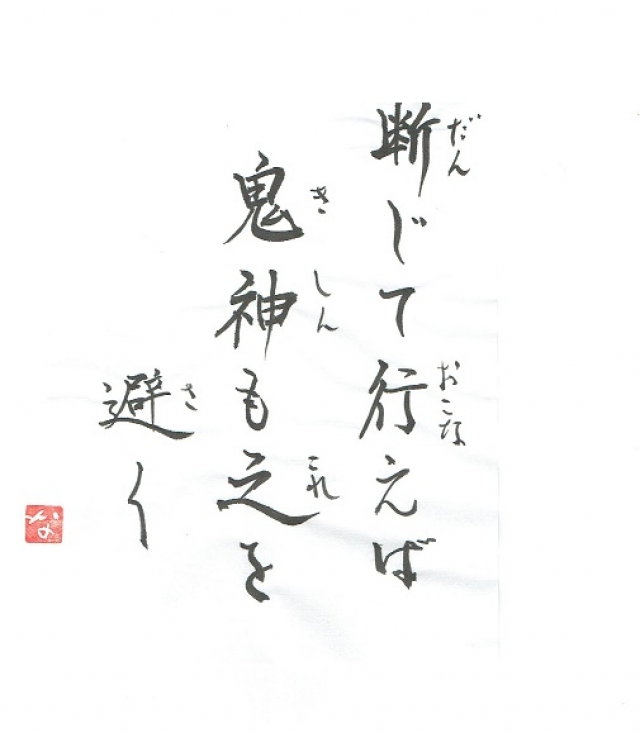 断じて行えば
だん
おこな
鬼神も之を
き
しん
これ
避く
さ